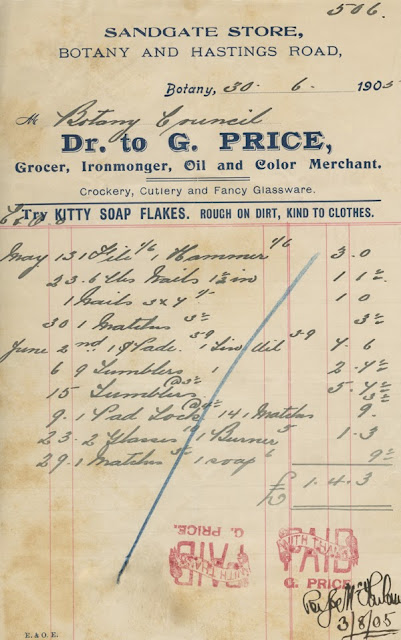 506.
SANDGATE STORE,
BOTANY AND HASTINGS ROAD,
Botany, 30. 6. 1905
M Botany Council
Dr. to G. PRICE,
Grocer, Ironmonger, Oil and Color Merchant.
Crockery, Cutlery and Fancy Glassware.
Try KITTY SOAP FLAKES. ROUGH ON DIRT, KIND TO CLOTHES.
May 13 1 File 1/6 1 Hammer 1/6 3. 0
23. 6 lbs Nails in 1 1
1 Nails 3 x 4 1/- 1 0
30 1 Matches 3 3
June 2nd 1 Spade 3-9 1 Tin Oil 3-9 7 6
6 9 Tumblers 2. 4
15 Tumblers @ 3 5. 4
9. 1 Pad Lock @ 9 14 1 Matches 3 9.
23. 2 Glasses 1 Burner 5 1. 3
29. 1 Matches 3 1 soap 6 9
£ 1. 4. 3
PAID
WITH THANKS
G. PRICE.
PAID
WITH THANKS
G. PRICE
3/8/05
E. & O. E.